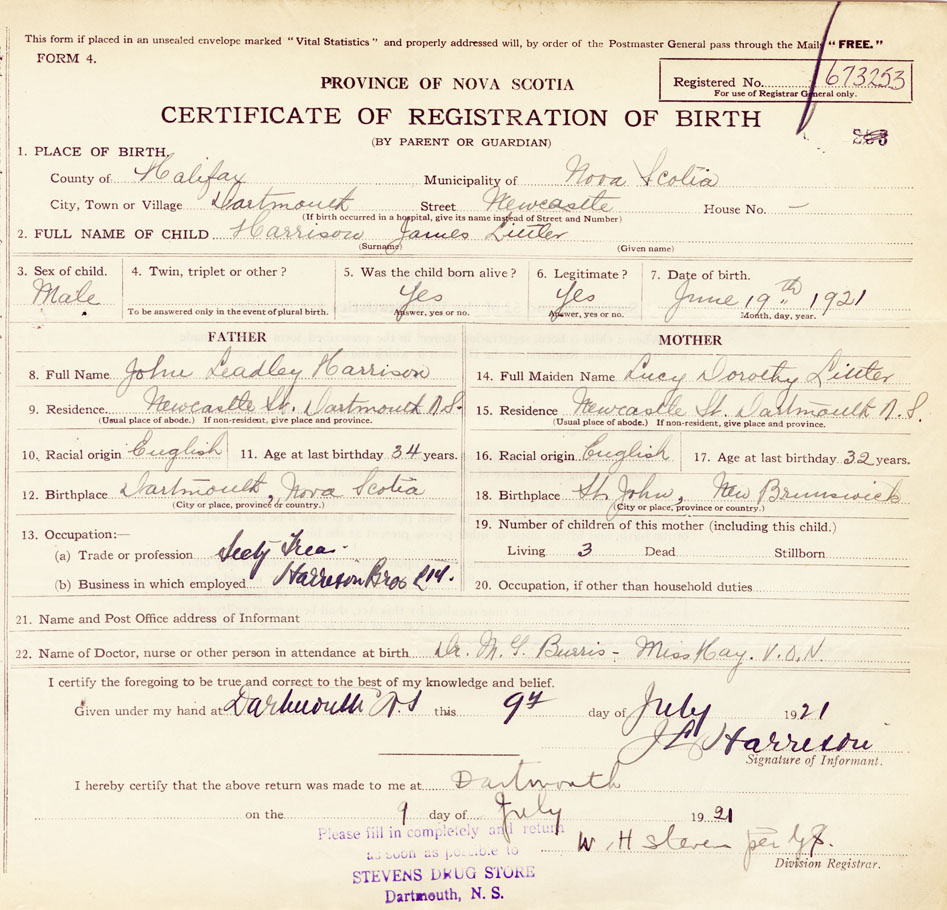 This form if placed in an unsealed envelope marked "Vital Statistics" and properly addressed will, by order of the Postmaster General pass through the Mails "FREE."
FORM 4.
Registered No. 673253
For use of Registrar General only.
PROVINCE OF NOVA SCOTIA
CERTIFICATE OF REGISTRATION OF BIRTH
(BY PARENT OR GUARDIAN)
1. PLACE OF BIRTH.
County of Halifax Municipality of Nova Scotia
City, Town or Village Dartmouth Street Newcastle House No. —
(If birth occurred in a hospital, give its name instead of Street and Number)
2. FULL NAME OF CHILD Harrison James Littler
(Surname) (Given name)
3. Sex of child. 4. Twin, triplet or other? 5. Was the child born alive? 6. Legitimate? 7. Date of birth.
Male Yes Yes June 19th 1921
To be answered only in the event of plural birth. Answer, yes or no. Answer, yes or no. Month, day, year.
FATHER MOTHER
8. Full Name John Leadley Harrison 14. Full Maiden Name Lucy Dorothy Littler
9. Residence Newcastle St. Dartmouth N.S. 15. Residence Newcastle St. Dartmouth N.S.
(Usual place of abode.) If non-resident, give place and province. (Usual place of abode.) If non-resident, give place and province.
10. Racial origin English 11. Age at last birthday 34 years. 16. Racial origin English 17. Age at last birthday 32 years.
12. Birthplace Dartmouth, Nova Scotia 18. Birthplace St. John, New Brunswick
(City or place, province or country.) (City or place, province or country.)
13. Occupation:— 19. Number of children of this mother (including this child.)
(a) Trade or profession Secty Treas. Living 3 Dead Stillborn
(b) Business in which employed Harrison Bros Ltd. 20. Occupation, if other than household duties
21. Name and Post Office address of Informant
22. Name of Doctor, nurse or other person in attendance at birth Dr. M. G. Burris - Miss Hay. V.O.N.
I certify the foregoing to be true and correct to the best of my knowledge and belief.
Given under my hand at Dartmouth N.S this 9th day of July 1921
J L Harrison
Signature of Informant.
I hereby certify that the above return was made to me at Dartmouth
on the 9 day of July 1921
Please fill in completely and return
as soon as possible to
W H Stevens per
Division Registrar.
STEVENS DRUG STORE
Dartmouth, N. S.